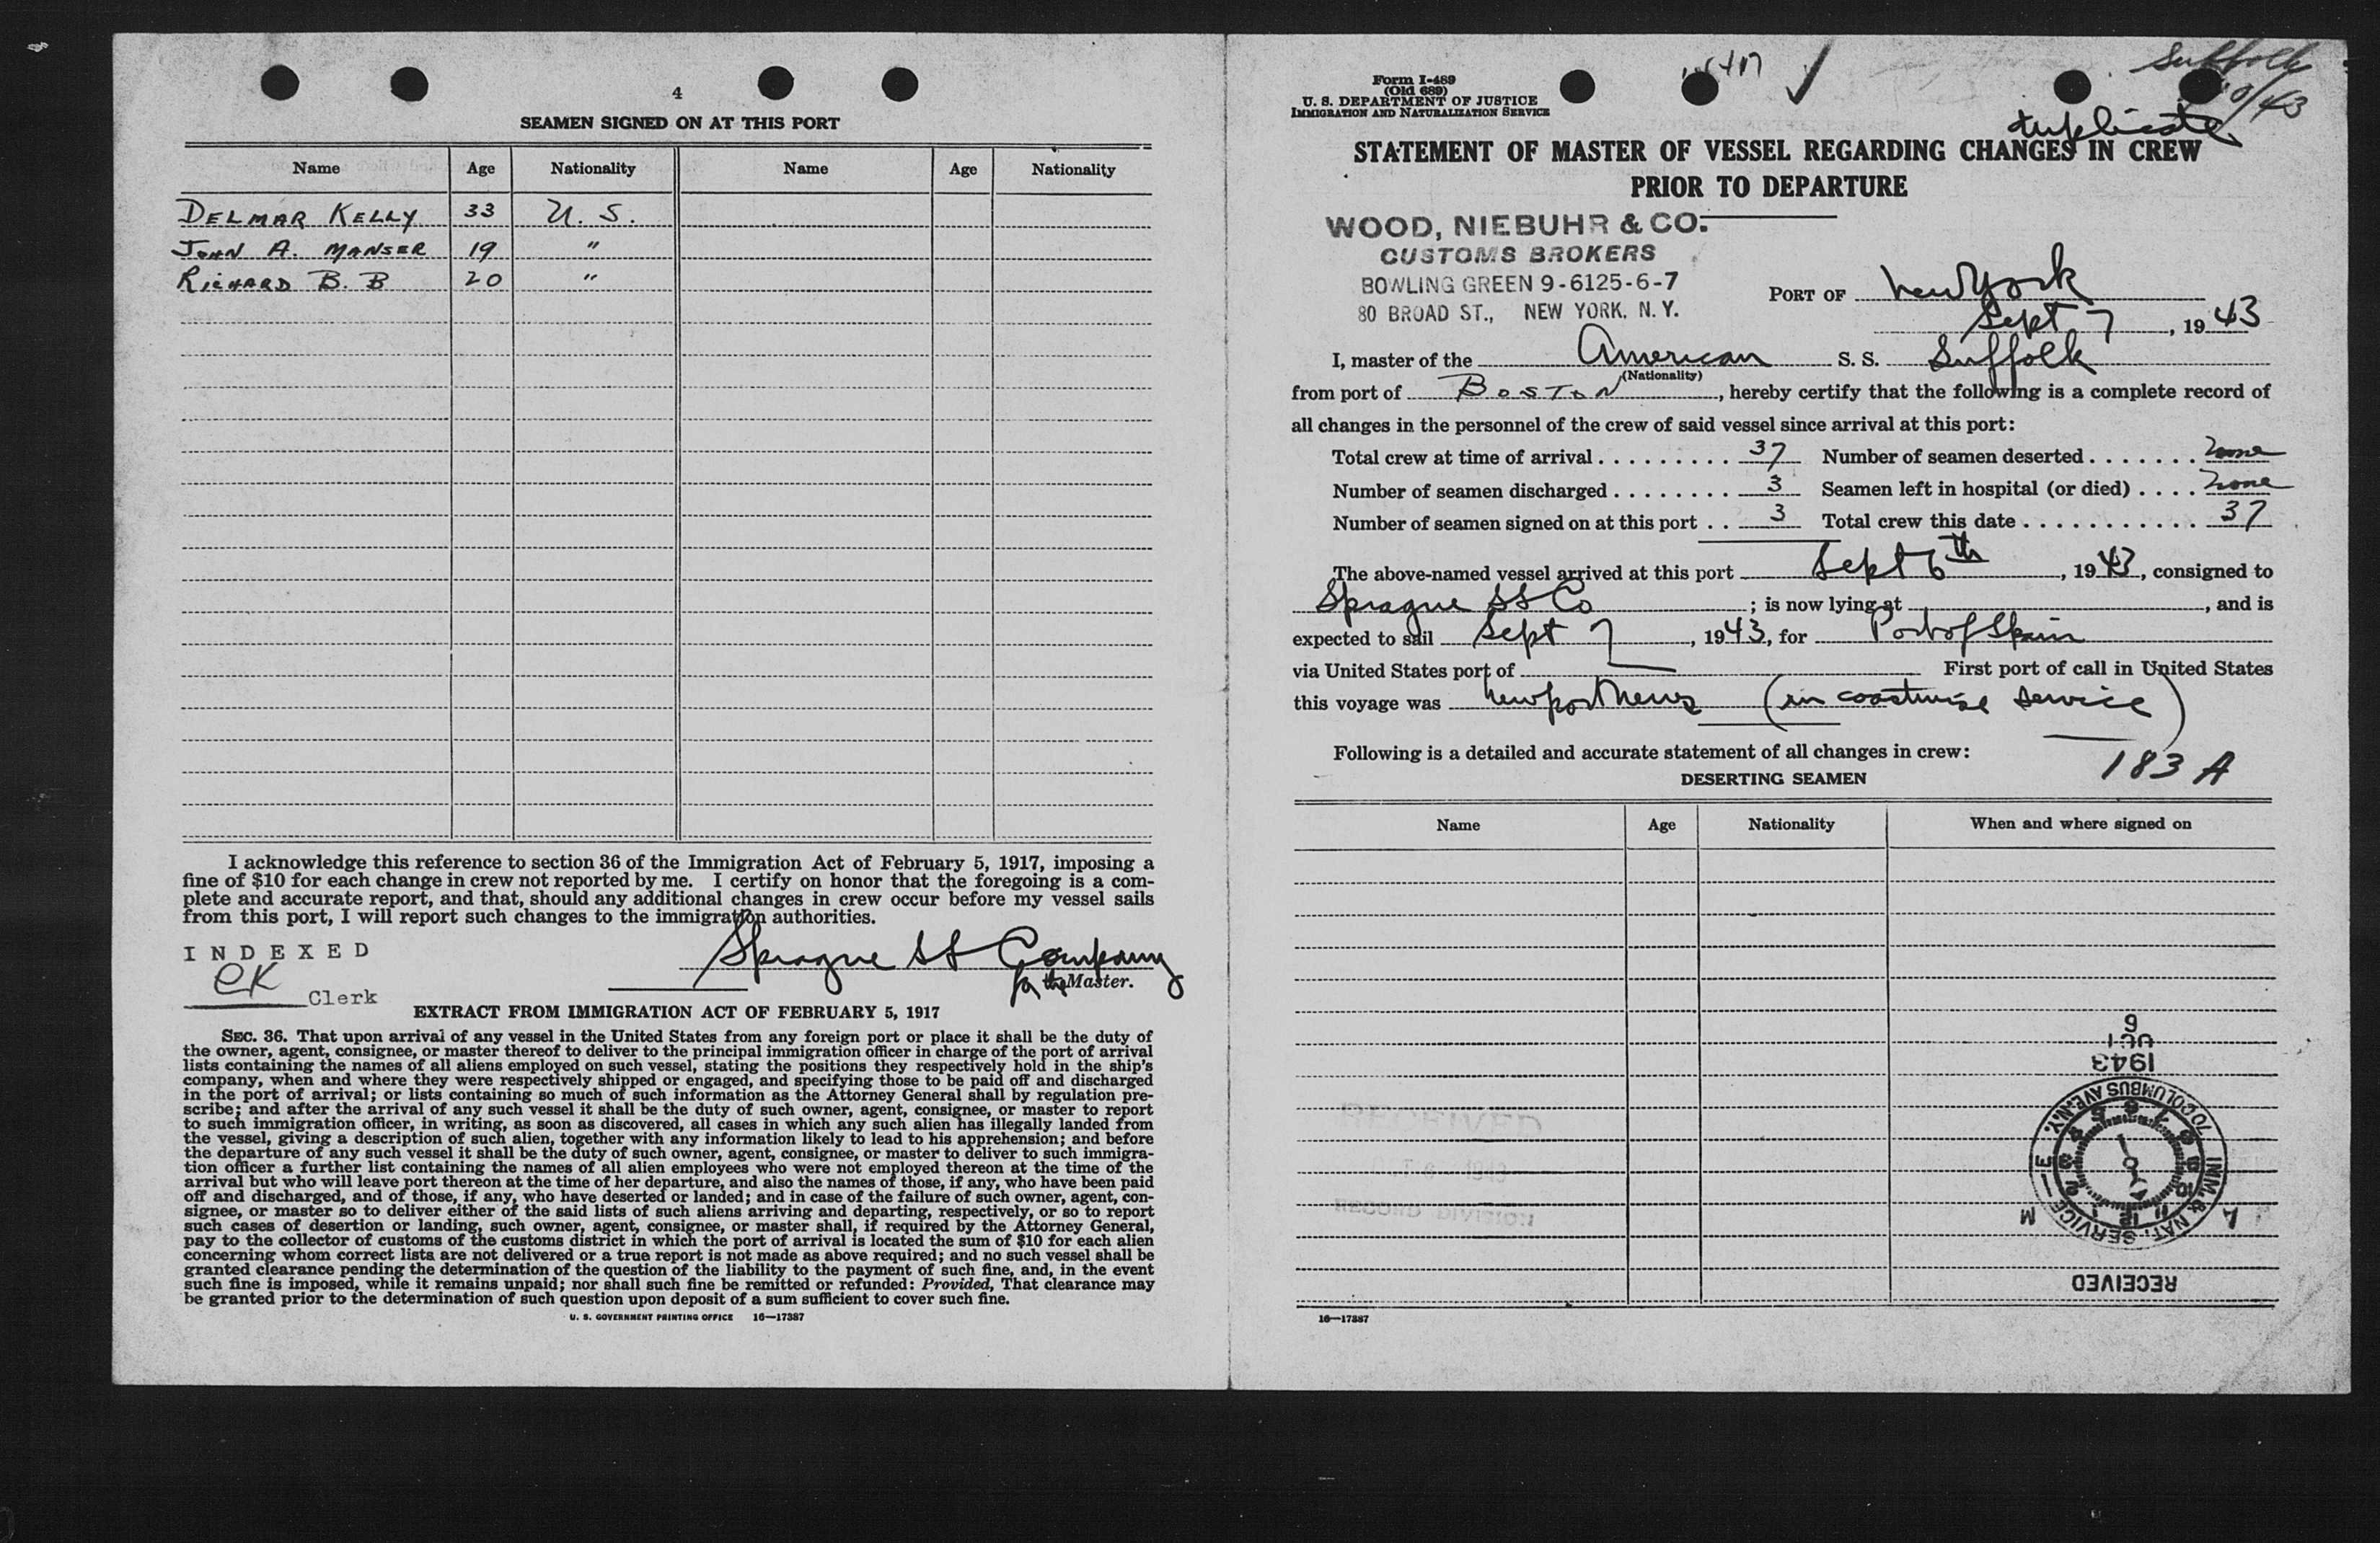 4
SEAMEN SIGNED ON AT THIS PORT
Name Age Nationality Name Age Nationality
DELMAR KELLY 33 U. S.
JOHN A. MANSER 19 "
RICHARD B. B 20 "
I acknowledge this reference to section 36 of the Immigration Act of February 5, 1917, imposing a
fine of $10 for each change in crew not reported by me. I certify on honor that the foregoing is a com-
plete and accurate report, and that, should any additional changes in crew occur before my vessel sails
from this port, I will report such changes to the immigration authorities.
INDEXED
CK Clerk
Sprague SS Company
for the Master.
EXTRACT FROM IMMIGRATION ACT OF FEBRUARY 5, 1917
SEC. 36. That upon arrival of any vessel in the United States from any foreign port or place it shall be the duty of
the owner, agent, consignee, or master thereof to deliver to the principal immigration officer in charge of the port of arrival
lists containing the names of all aliens employed on such vessel, stating the positions they respectively hold in the ship's
company, when and where they were respectively shipped or engaged, and specifying those to be paid off and discharged
in the port of arrival; or lists containing so much of such information as the Attorney General shall by regulation pre-
scribe; and after the arrival of any such vessel it shall be the duty of such owner, agent, consignee, or master to report
to such immigration officer, in writing, as soon as discovered, all cases in which any such alien has illegally landed from
the vessel, giving a description of such alien, together with any information likely to lead to his apprehension; and before
the departure of any such vessel it shall be the duty of such owner, agent, consignee, or master to deliver to such immigra-
tion officer a further list containing the names of all alien employees who were not employed thereon at the time of the
arrival but who will leave port thereon at the time of her departure, and also the names of those, if any, who have been paid
off and discharged, and of those, if any, who have deserted or landed; and in case of the failure of such owner, agent, con-
signee, or master so to deliver either of the said lists of such aliens arriving and departing, respectively, or so to report
such cases of desertion or landing, such owner, agent, consignee, or master shall, if required by the Attorney General,
pay to the collector of customs of the customs district in which the port of arrival is located the sum of $10 for each alien
concerning whom correct lists are not delivered or a true report is not made as above required; and no such vessel shall be
granted clearance pending the determination of the question of the liability to the payment of such fine, and, in the event
such fine is imposed, while it remains unpaid; nor shall such fine be remitted or refunded: Provided, That clearance may
be granted prior to the determination of such question upon deposit of a sum sufficient to cover such fine.
U. S. GOVERNMENT PRINTING OFFICE 16—17387
Form I-489
(Old 689)
U. S. DEPARTMENT OF JUSTICE
IMMIGRATION AND NATURALIZATION SERVICE
Suffolk
10/43
duplicate
STATEMENT OF MASTER OF VESSEL REGARDING CHANGES IN CREW
PRIOR TO DEPARTURE
WOOD, NIEBUHR & CO.
CUSTOMS BROKERS
BOWLING GREEN 9-6125-6-7
80 BROAD ST., NEW YORK, N. Y.
PORT OF New York
Sept 7, 1943
I, master of the American S. S. Suffolk
(Nationality)
from port of BOSTON, hereby certify that the following is a complete record of
all changes in the personnel of the crew of said vessel since arrival at this port:
Total crew at time of arrival 37 Number of seamen deserted none
Number of seamen discharged 3 Seamen left in hospital (or died) none
Number of seamen signed on at this port 3 Total crew this date 37
The above-named vessel arrived at this port Sept 6th, 1943, consigned to
Sprague SS Co; is now lying at , and is
expected to sail Sept 7, 1943, for Port of Spain
via United States port of First port of call in United States
this voyage was Newport News (in coastwise service)
Following is a detailed and accurate statement of all changes in crew:
183 A
DESERTING SEAMEN
Name Age Nationality When and where signed on
RECEIVED
IMM. & NAT. SERVICE
70 COLUMBUS AVE. N.Y.
A M
1943
OCT
6
RECEIVED
16—17387